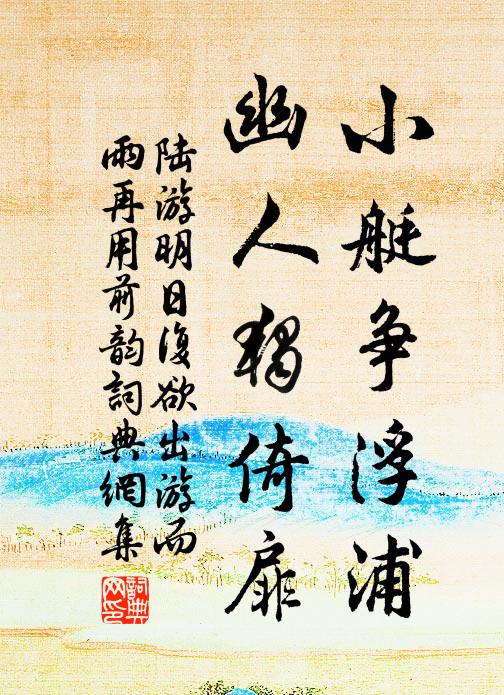 小艇争浮浦
幽人独倚扉
陆游明日復欲出游而
雨再用前韵詞典網集
詞典
网印